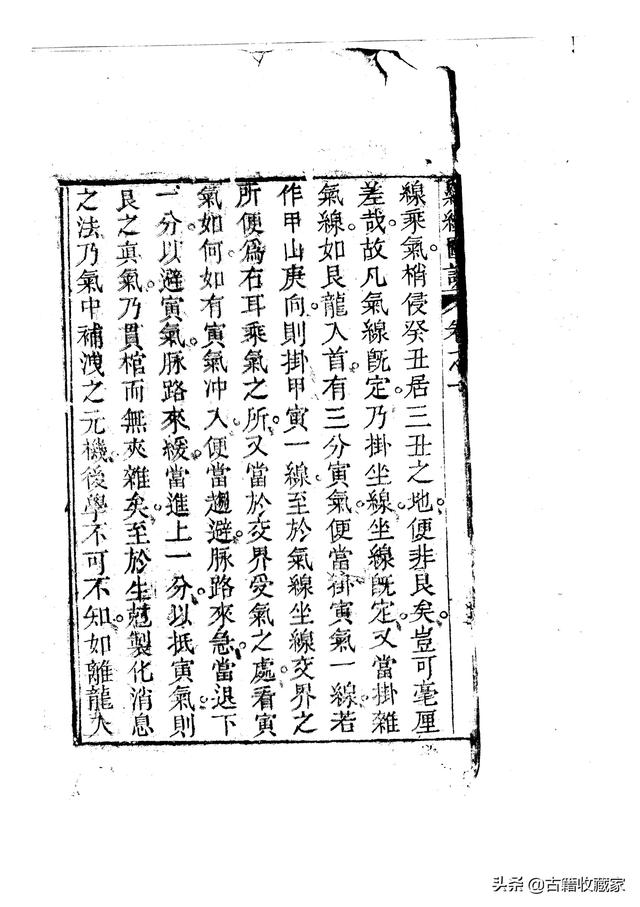 卷之一
線乘氣梢侵癸丑居三丑之地便非艮矣豈可毫厘
差哉故凡氣線既定乃掛坐線坐線既定又當掛雜
氣線如艮龍入首有三分寅氣便當掛寅氣一線若
作甲山庚向則掛甲寅一線至於氣線坐線交界之
所便爲右耳乘氣之所又當於交界受氣之處看寅
氣如何如有寅氣冲入便當趨避脉路來急當退下
一分以避寅氣脉路來緩當進上一分以抵寅氣則
艮之真氣乃貫棺而無夾雜矣至於生尅製化消息
之法乃氣中補洩之元機後學不可不知如離龍大
头条 @古籍收藏家